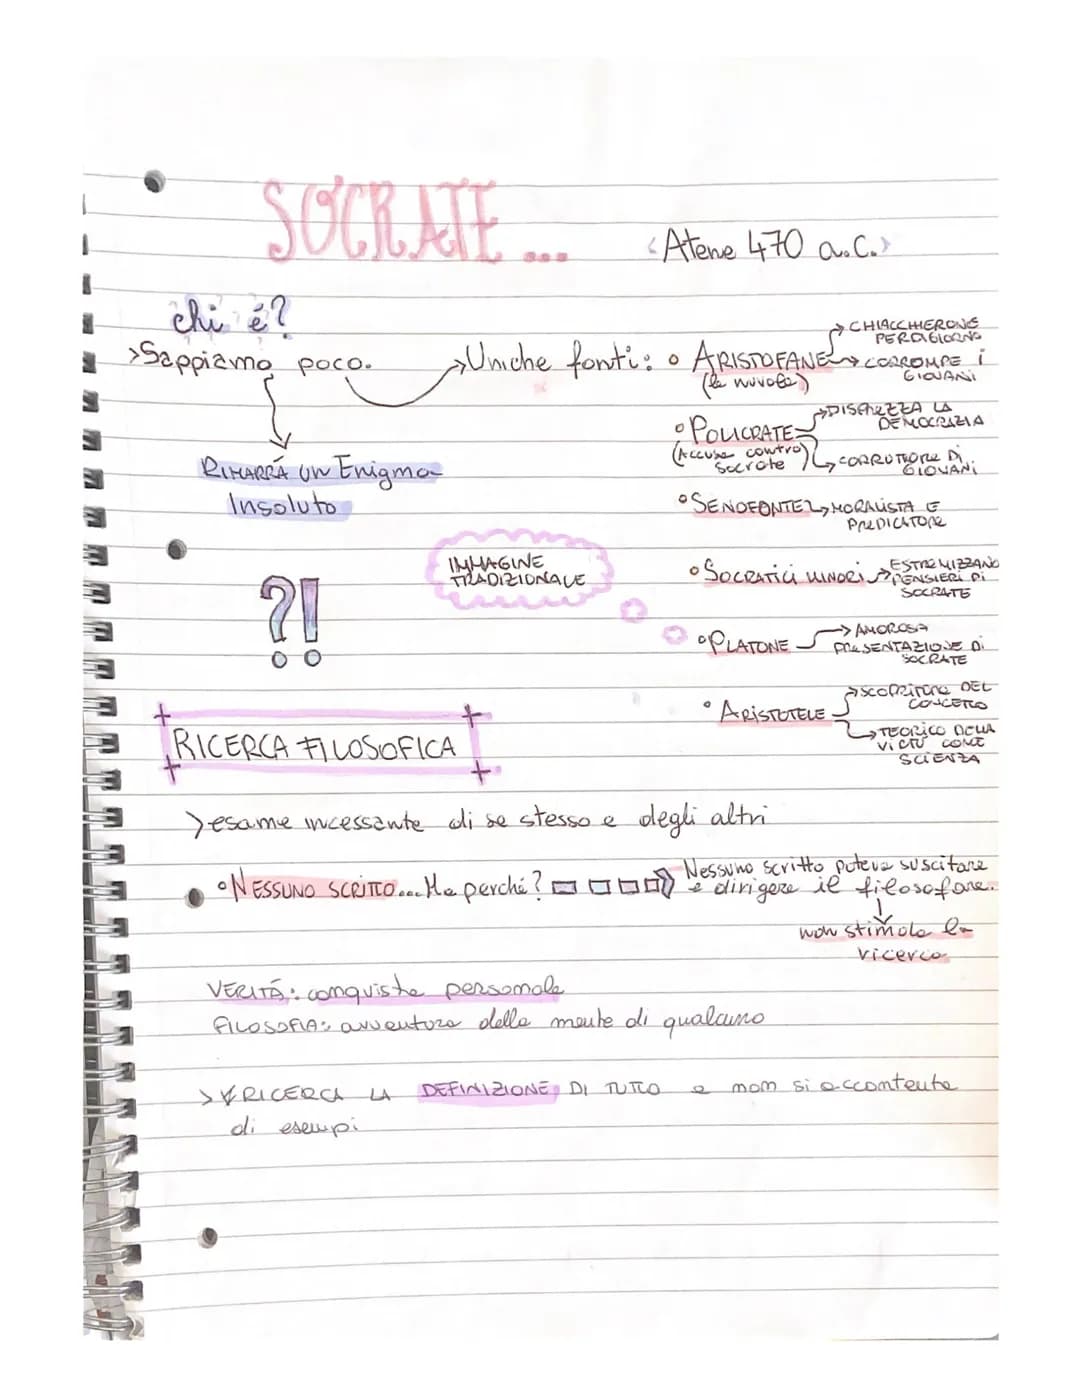 SOCRATE...
<Atene 470 a.C.>
chi é?
>Sappiamo poco.
→Uniche fonti:
• ARISTOFANE
(le nuvole)
→ CHIACCHIERONE
PERDIGIORNO
→ CORROMPE i
GIOVANI
• POLICRATE
(Accusa contro
Socrate)
→DISPREZZA LA
DEMOCRAZIA
→ CORRUTTORE DI
GIOVANI
RIMARRÁ UN Enigma
Insoluto
• SENOFONTE → MORALISTA E
PREDICATORE
?!
IMMAGINE
TRADIZIONALE
• SOCRATICI MINORI → ESTREMIZZANO
PENSIERI DI
SOCRATE
• PLATONE → AMOROSA
PRESENTAZIONE DI
SOCRATE
• ARISTOTELE
→SCOPRITORE DEL
CONCETTO
→ TEORICO DELLA
VIRTÙ COME
SCIENZA
RICERCA FILOSOFICA
>esame incessante di se stesso e degli altri
• NESSUNO SCRITTO...Ma perché?
Nessuno scritto poteva suscitare
e dirigere il filosofare.
non stimola la
ricerca
VERITÁ: conquista personale
FILOSOFIA: avventura della mente di qualcuno
> RICERCA LA DEFINIZIONE DI TUTTO e non si accontenta
di esempi